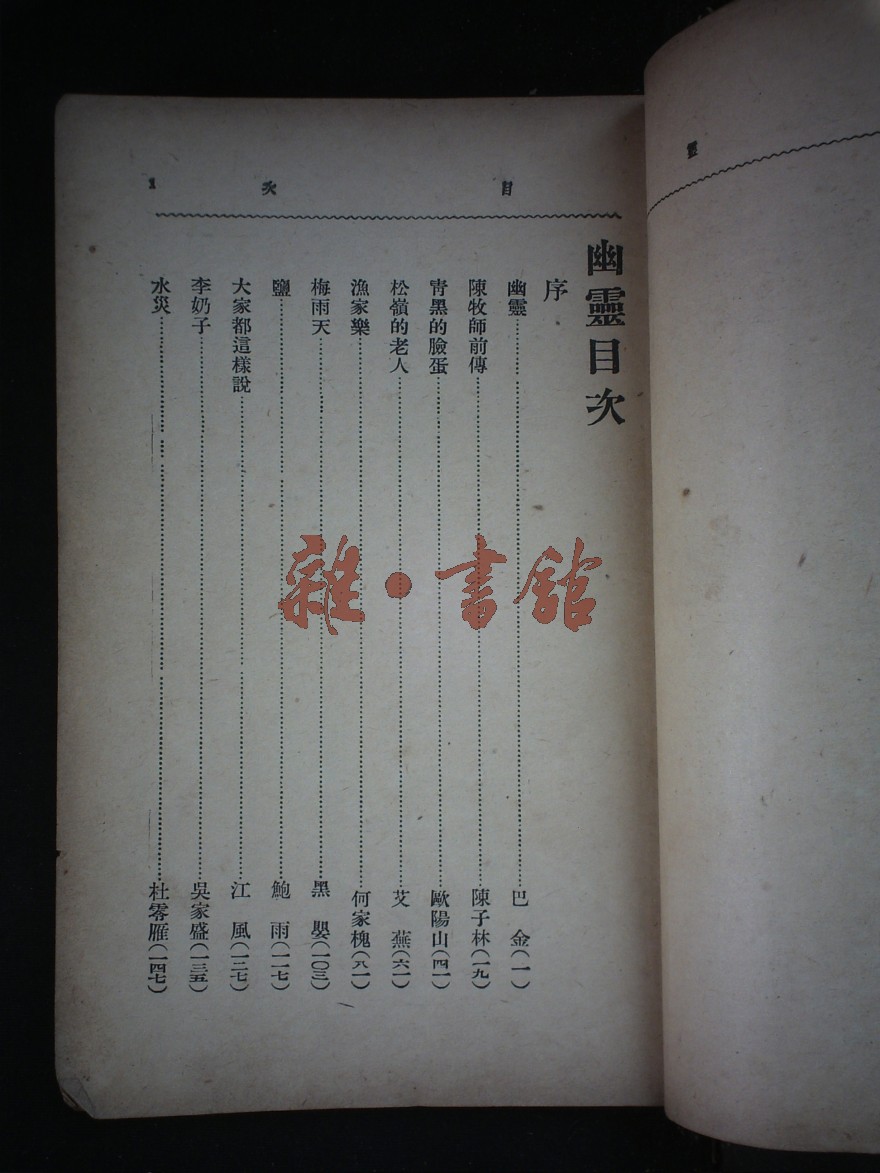 目次 1
幽靈目次
序
幽靈 巴金(一)
陳牧師前傳 陳子林(一九)
靑黑的臉蛋 歐陽山(四一)
松嶺的老人 艾蕪(六一)
漁家樂 何家槐(八一)
梅雨天 黑嬰(一〇三)
鹽 鮑雨(一一七)
大家都這樣說 江風(一二七)
李奶子 吳家盛(一三五)
水災 杜零雁(一四七)
雜·書館
靈